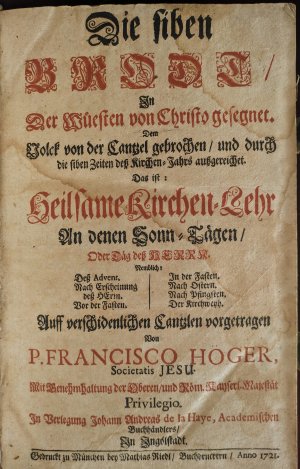 Die siben
BRODT /
In
Der Wüesten von Christo gesegnet.
Dem
Volck von der Cantzel gebrochen / und durch
die siben Zeiten deß Kirchen-Jahrs außgereichet.
Das ist:
Heilsame Kirchen-Lehr
An denen Sonn-Tägen /
Oder Täg deß HERRN.
Nemblich:
Deß Advent. In der Fasten.
Nach Erscheinung Nach Ostern.
deß HErrn. Nach Pfingsten.
Vor der Fasten. Der Kirchweyh.
Auff verschidenlichen Cantzlen vorgetragen
Von
P. FRANCISCO HOGER,
Societatis JESU.
Mit Genehmhaltung der Oberen / und Röm. Kayserl. Majestät
Privilegio.
In Verlegung Johann Andreas de la Haye, Academischen
Buchhändlers /
In Ingolstadt.
Gedruckt zu München bey Mathias Riedl / Buchdruckern / Anno 1721.